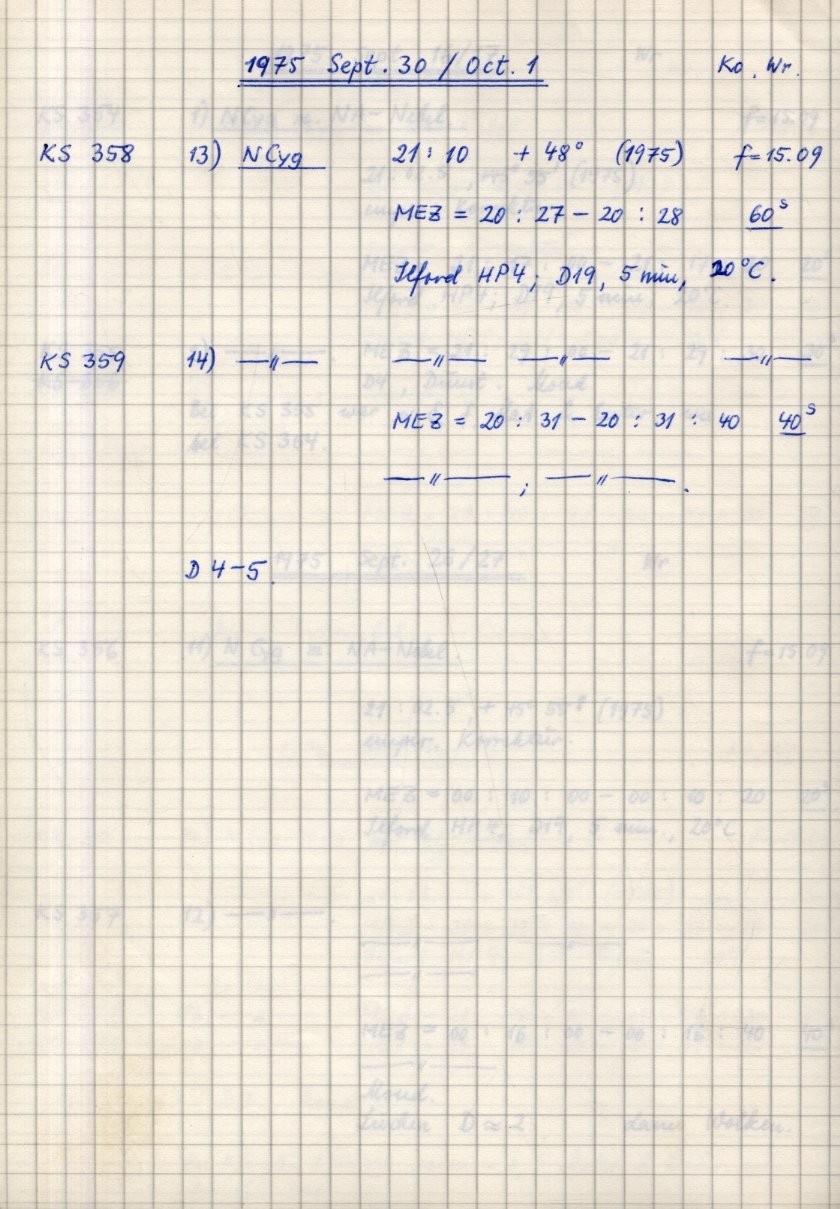 1975 Sept. 30 / Oct. 1 Ko, Wr.
KS 358 13) N Cyg 21 : 10 + 48° (1975) f = 15.09
MEZ = 20 : 27 – 20 : 28 60ˢ
Ilford HP4; D19, 5 min, 20°C.
KS 359 14) —〃— —〃— —〃— —〃—
MEZ = 20 : 31 – 20 : 31 : 40 40ˢ
—〃— ; —〃— .
D 4–5.